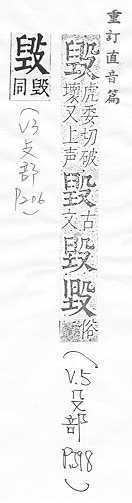 重訂直音篇
毀虎委切破壞又上声毀古文毀毀俗
(V.5 殳部 P398)
毁毁同
(V3 攴部 P206)